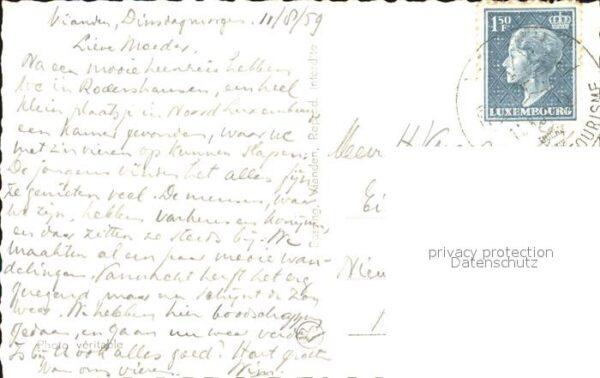 Vianden, Dinsdagmorgen. 11/8/59
Lieve Moeder,
Na een mooie heenreis hebben
we in Rodershausen, een heel
klein plaatsje in Noord Luxemburg
een kamer gevonden, waar we
met z'n vieren op kunnen slapen.
De jongens vinden het alles fijn
ze genieten veel. De mensen, waar
we zijn, hebben varkens en konijnen
en daar zitten ze steeds bij. We
maakten al een paar mooie wan-
delingen. Vannacht heeft het erg
geregend, maar nu schijnt de zon
weer. We hebben hier boodschappen
gedaan, en gaan nu weer verder
Is bij U ook alles goed? Hart. groeten
van ons vieren. Wim.
Photo véritable
Vianden, Reprod. interdite
1.50
F
LUXEMBOURG
TOURISME
H. V
Ei
Nieu
privacy protection
Datenschutz